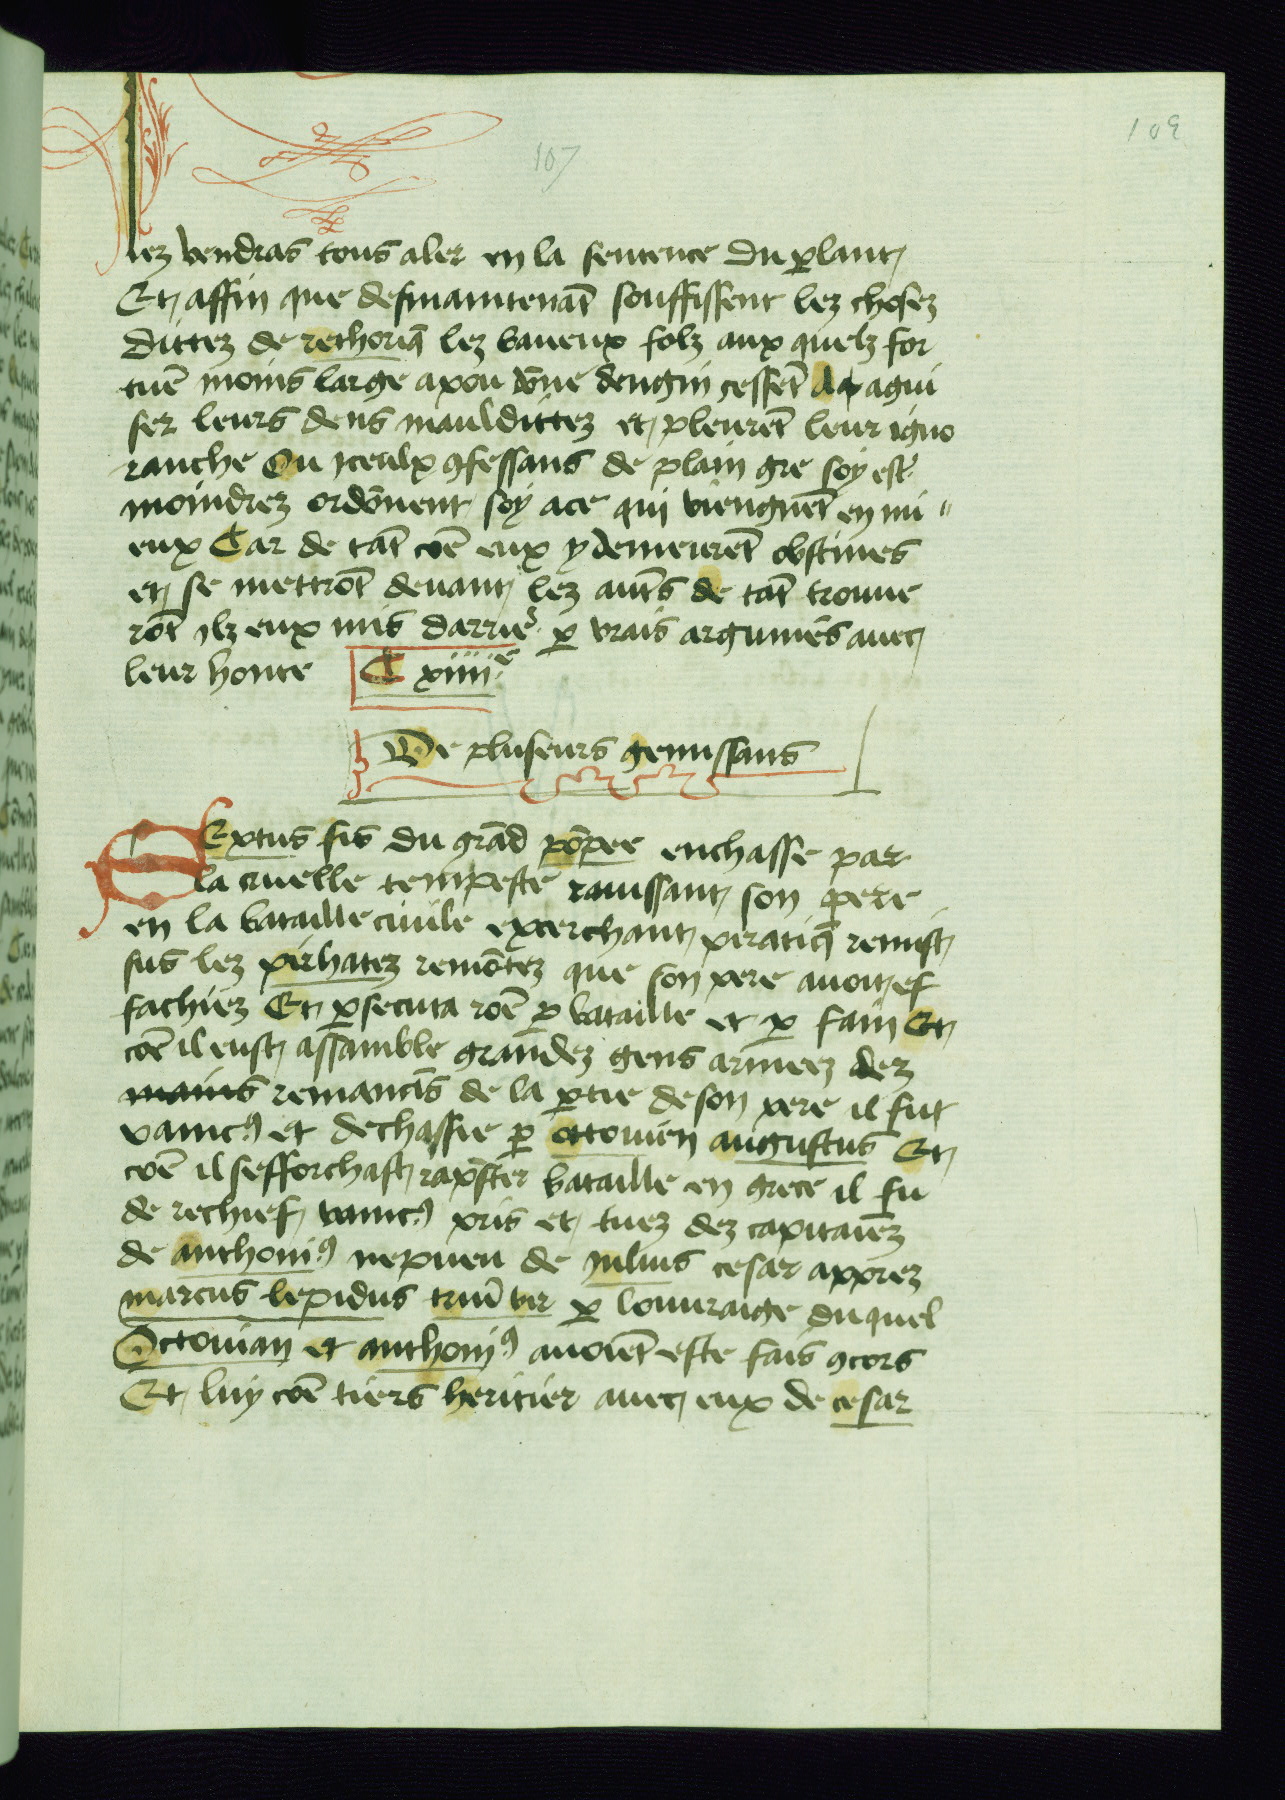 107
109
lez vendras tous aler en la sentence du p̱lant
Et affin que desmaintenāt souffissent lez chosez
dittez de rethoriq̄ lez baueux folz aux quelz for
tuē moins large a pou dōne dengin cessēt da agui
ser leurs dens mauldittez et pleurēt leur igno
ranche Ou yceulx ꝯfessans de plain gre soy estr̄
moindrez ordōnent soy a ce qui viengnēt en mi
eux Car de tāt cōe eux y demeurēt obstines
et se mettrōt deuant lez aut̄s de tāt trouue
rōt ylz eux mis darriē ꝑ vrais argumēs auec
leur honte C xiiii e
De pluseurs gemissans
SExtus fis du grād pōpee enchasse par
la cruelle tempeste rauissant son pere
en la bataille ciuile excerchant peratiq̄ remist
sus lez pirhatez remōtez que son pere auoit ef
fachiez Et ꝑsecuta rōe ꝑ bataille et ꝑ fain Et
cōe il eust assamble grandez gens armeez dez
mains remanās de la ꝑtie de son pere il fut
vaincꝰ et dechassie ꝑ ottouien augustus Et
cōe il sefforchast rap̄ster bataille en grece il fu
de rechief vaincꝰ pris et tuez dez capitaiēz
de anthoniꝰ nepueu de julius cesar apprez
marcus lepidus triūvir ꝑ louuraige du quel
Octouian et anthoniꝰ auoiēt este fais ꝯcors
Et luy cōe tiers heritier auec eux de cesar